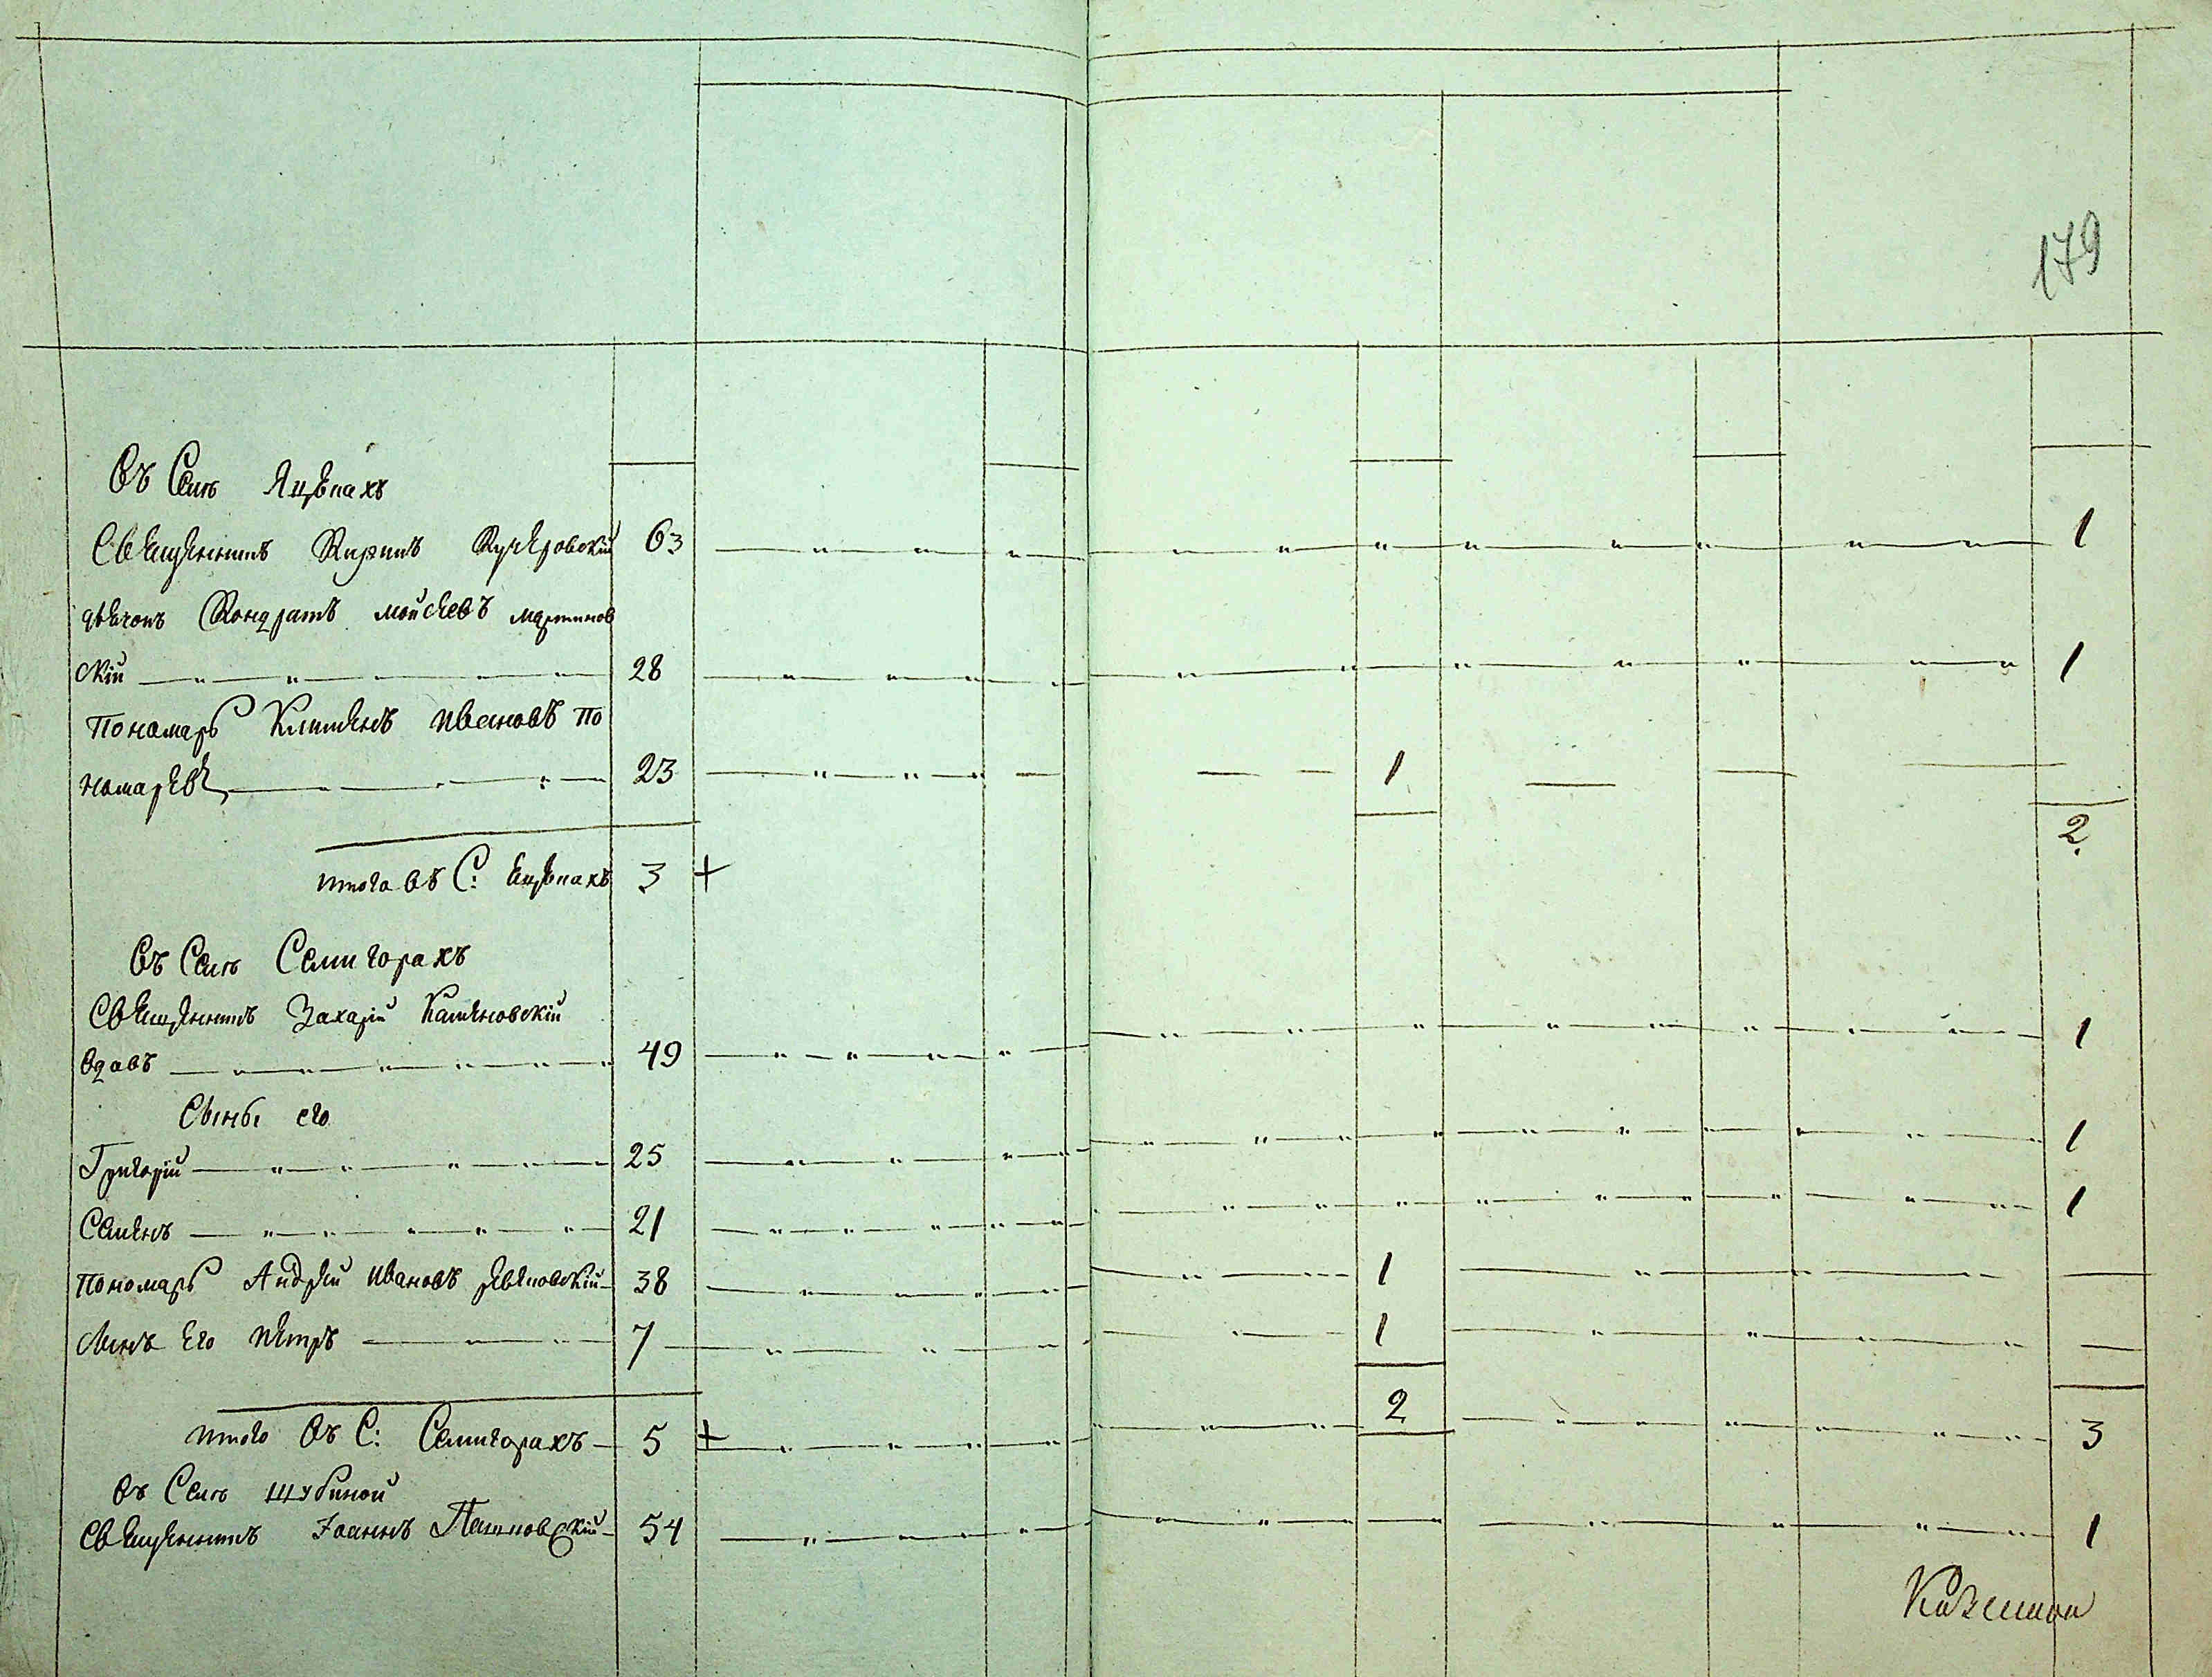 179
Въ Селѣ Яцѣпахъ
Священникъ Кирилъ Кучеровскій 63 1
дьячокъ Кондратъ Мойсеевъ Мартинов
скій 28 1
Пономарь Климентъ Ивановъ По
номаревъ 23 1
2
итого въ С: Яцѣпахъ 3 +
Въ Селѣ Семигорахъ
Священникъ Захарій
вдовъ 49 1
Сыны его
Григорій 25 1
Семенъ 21 1
Пономарь Андрей Ивановъ 38 1
Сынъ его Петръ 7 1
итого въ С: Семигорахъ 5 + 2 3
Въ Селѣ Шубиной
Священникъ Іоаннъ 54 1